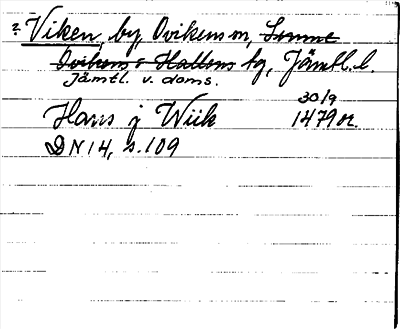 ? Viken, by, Ovikens sn, Sunne
Ovikens o Hallens tg, Jämtl. l.
Jämtl. v. doms.
30/9
Hans j Wiik 1479 or.
DN 14, s. 109